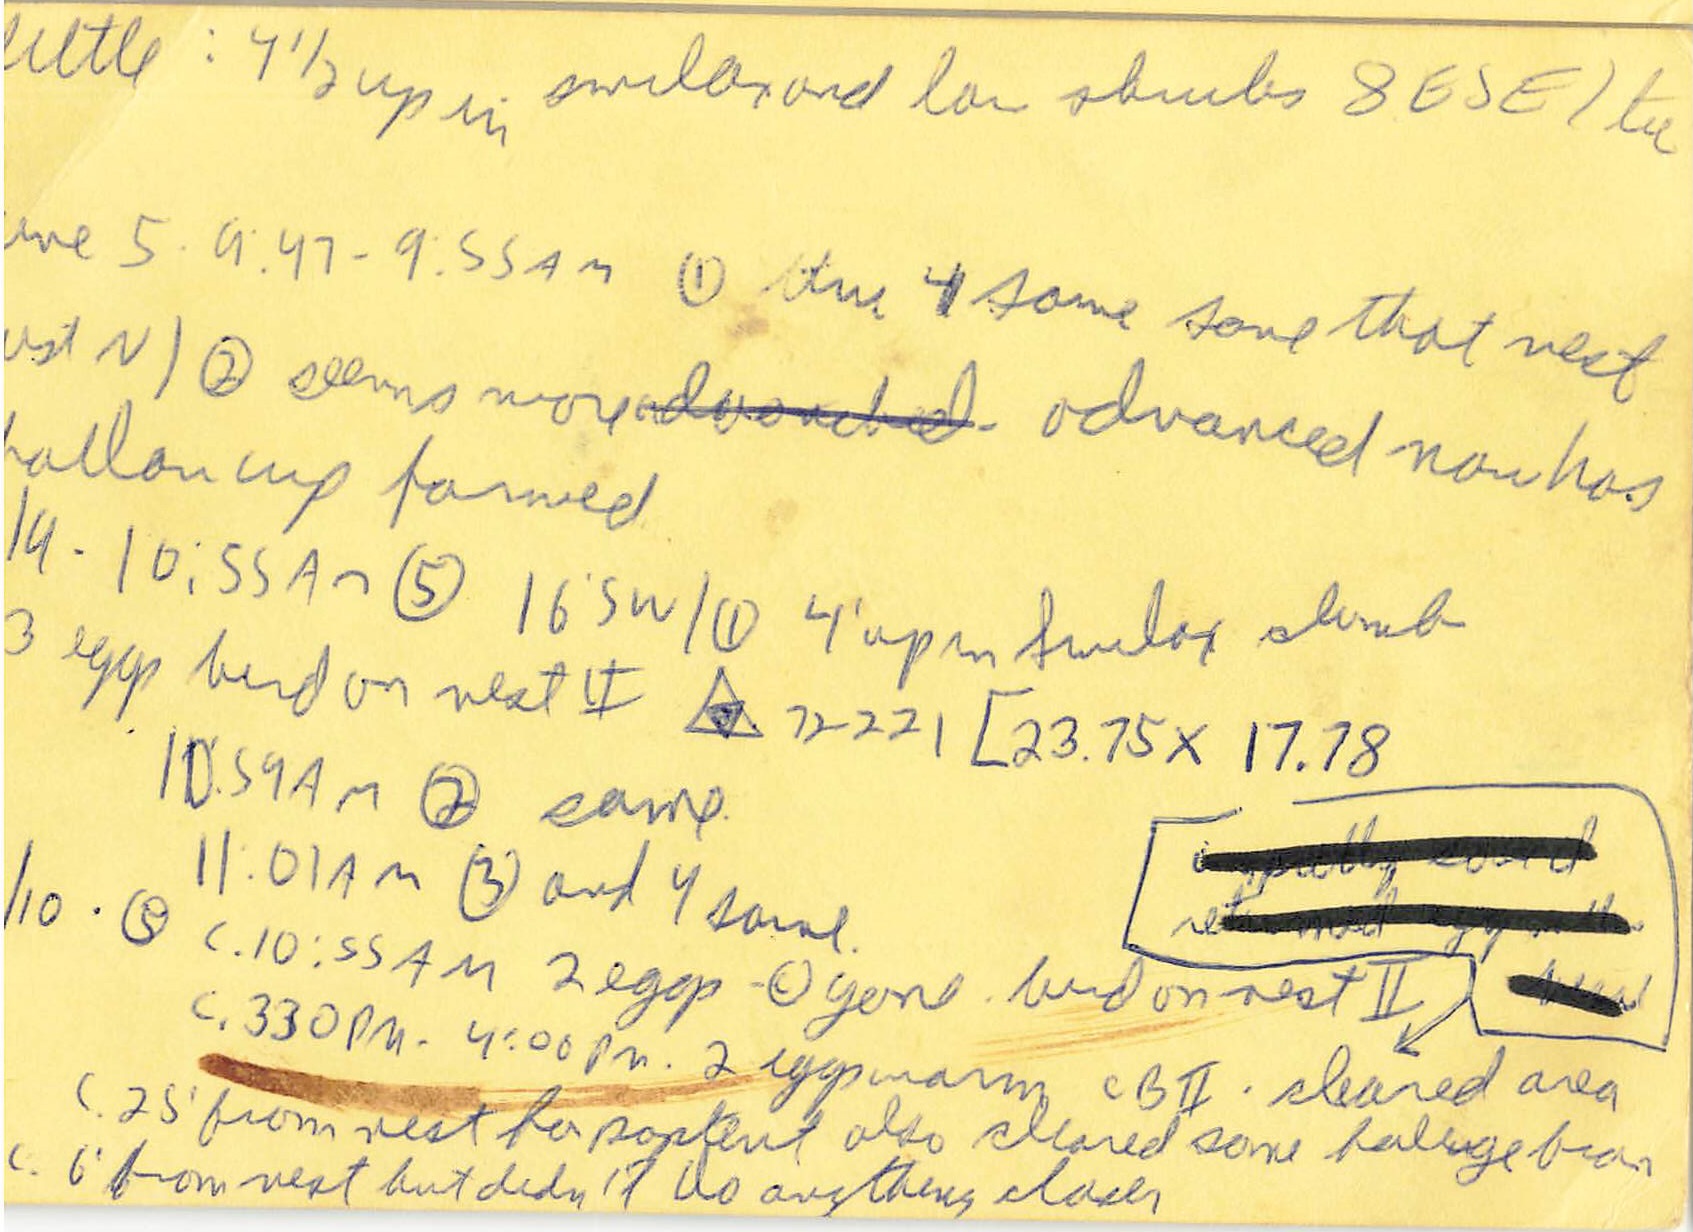 little : 4 1/2 up in smilax and low shrubs 8 ESE /
une 5. 9:47 - 9:55 AM ① 4 some some that nest
ust N) ② seems more advanced now has
hallow cup formed
/14 - 10:55 AM ⑤ 16' SW / ① 4' up in smilax climb
3 eggs bird on nest II 72221 [23.75 x 17.78
10:59 AM ② same.
11:01 AM ③ and 4 same.
/10 . ⑤ c. 10:55 AM 2 eggs - ① gone . bird on nest II
c. 330 PM. - 4:00 PM. 2 eggs warm cB II . cleared area
c. 25' from nest for also cleared some foliage from
c. 6' from nest but didn't do anything closer